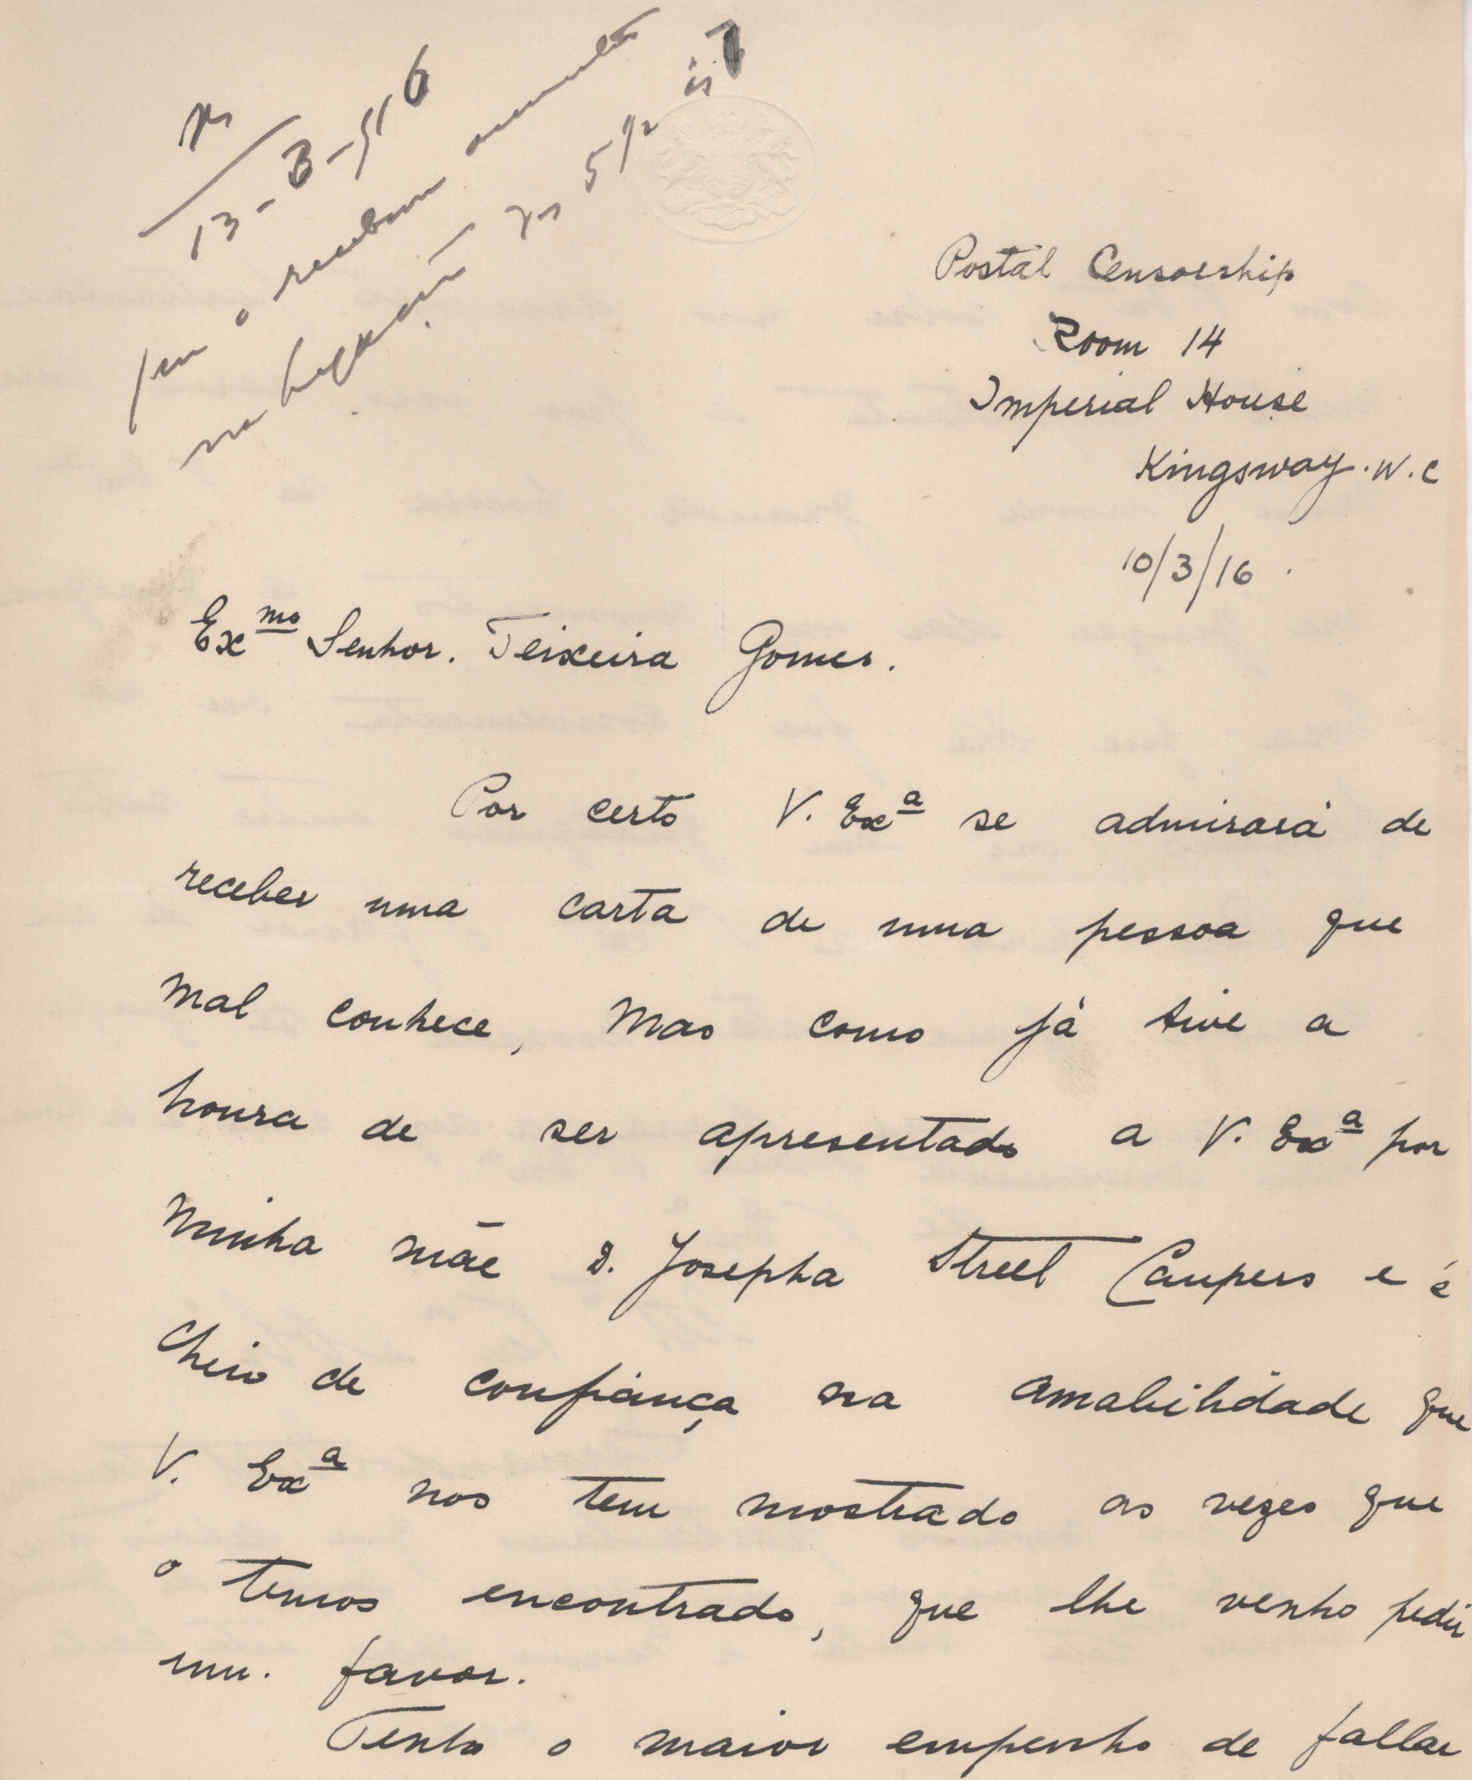 13-3-916
que o receberei amanhã
na Legação das 5 1/2 ás 7
Postal Censorship
Room 14
Imperial House
Kingsway. W. C
10/3/16.
Exmo Senhor. Teixeira Gomes.
Por certo V. Exa se admirará de
receber uma carta de uma pessoa que
mal conhece, mas como já tive a
honra de ser apresentado a V. Exa por
minha mãe D. Josepha Street Caupers e é
cheio de confiança na amabilidade que
V. Exa nos tem mostrado as vezes que
o temos encontrado, que lhe venho pedir
um. favor.
Tenho o maior empenho de fallar